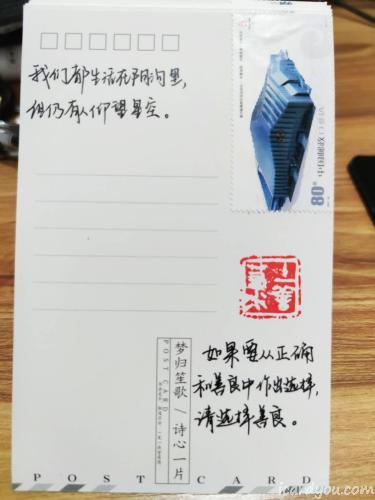 我们都生活在阴沟里,
但仍有人仰望星空。
80分
梦归笙歌 / 诗心一片
POST CARD
如果要从正确
和善良中作出选择,
请选择善良。
POST CARD
icardyou.com